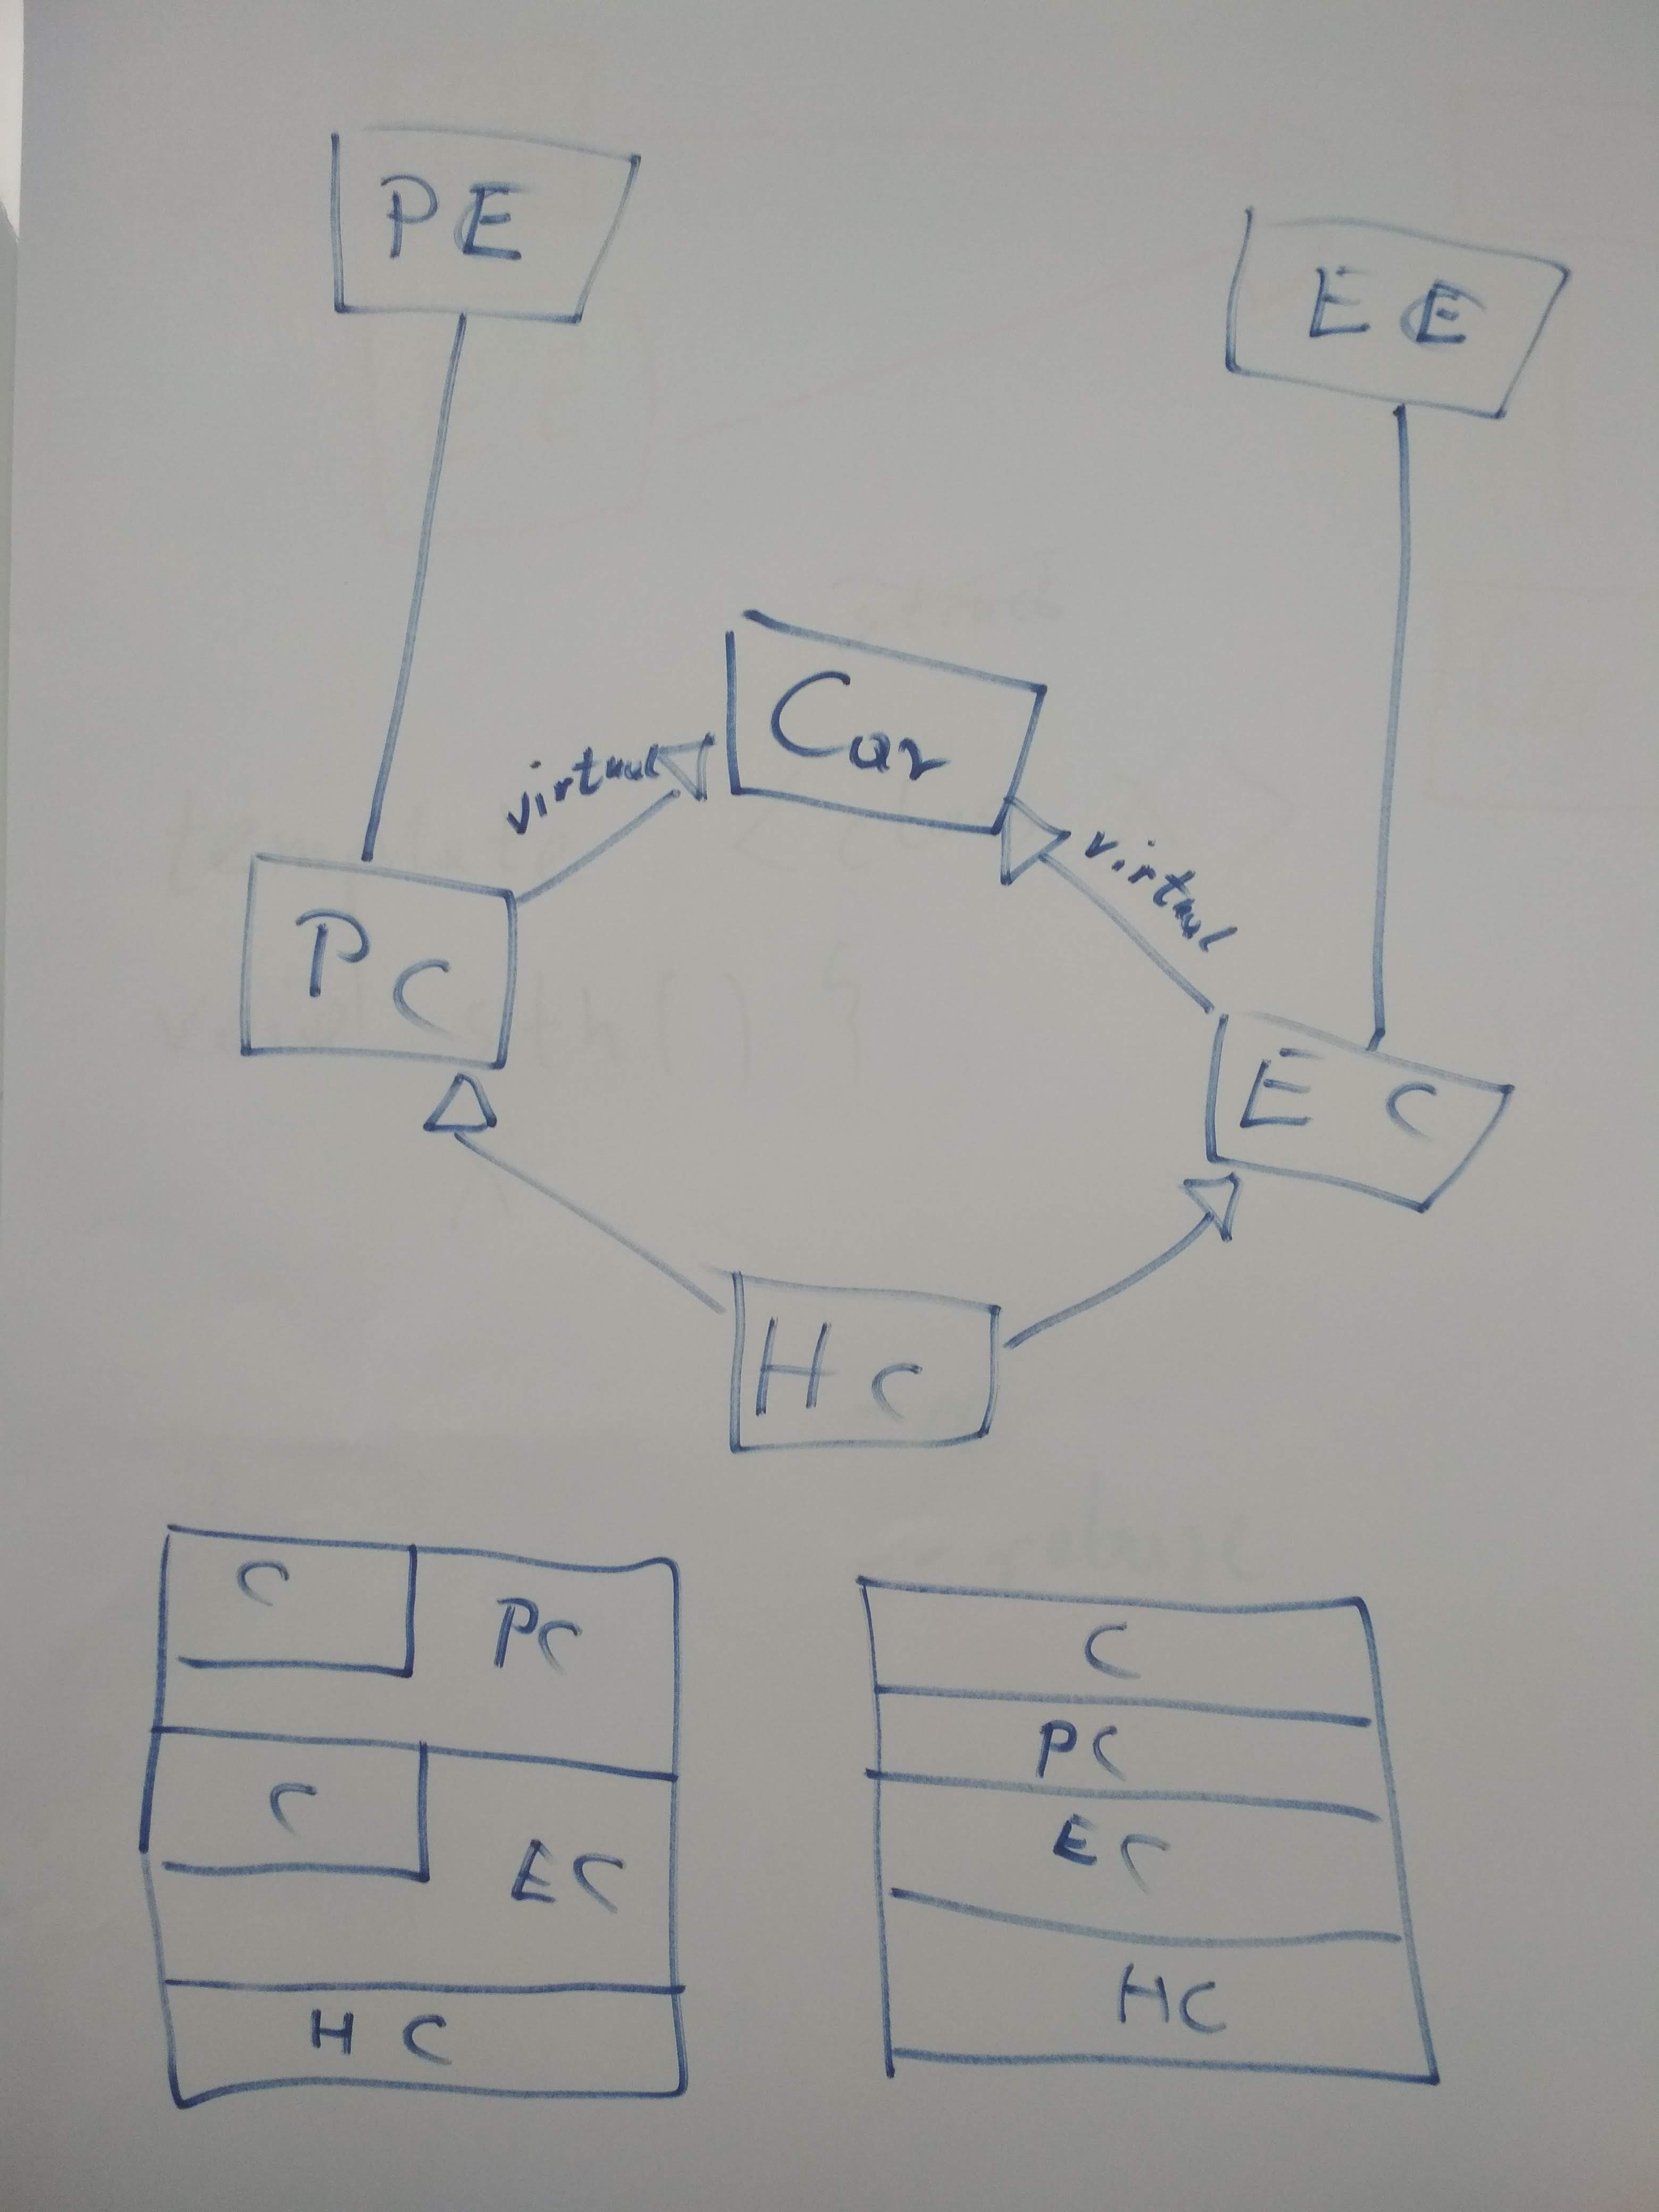 PE
EE
Car
virtual
virtual
PC
EC
HC
C
PC
C
EC
HC
C
PC
EC
HC